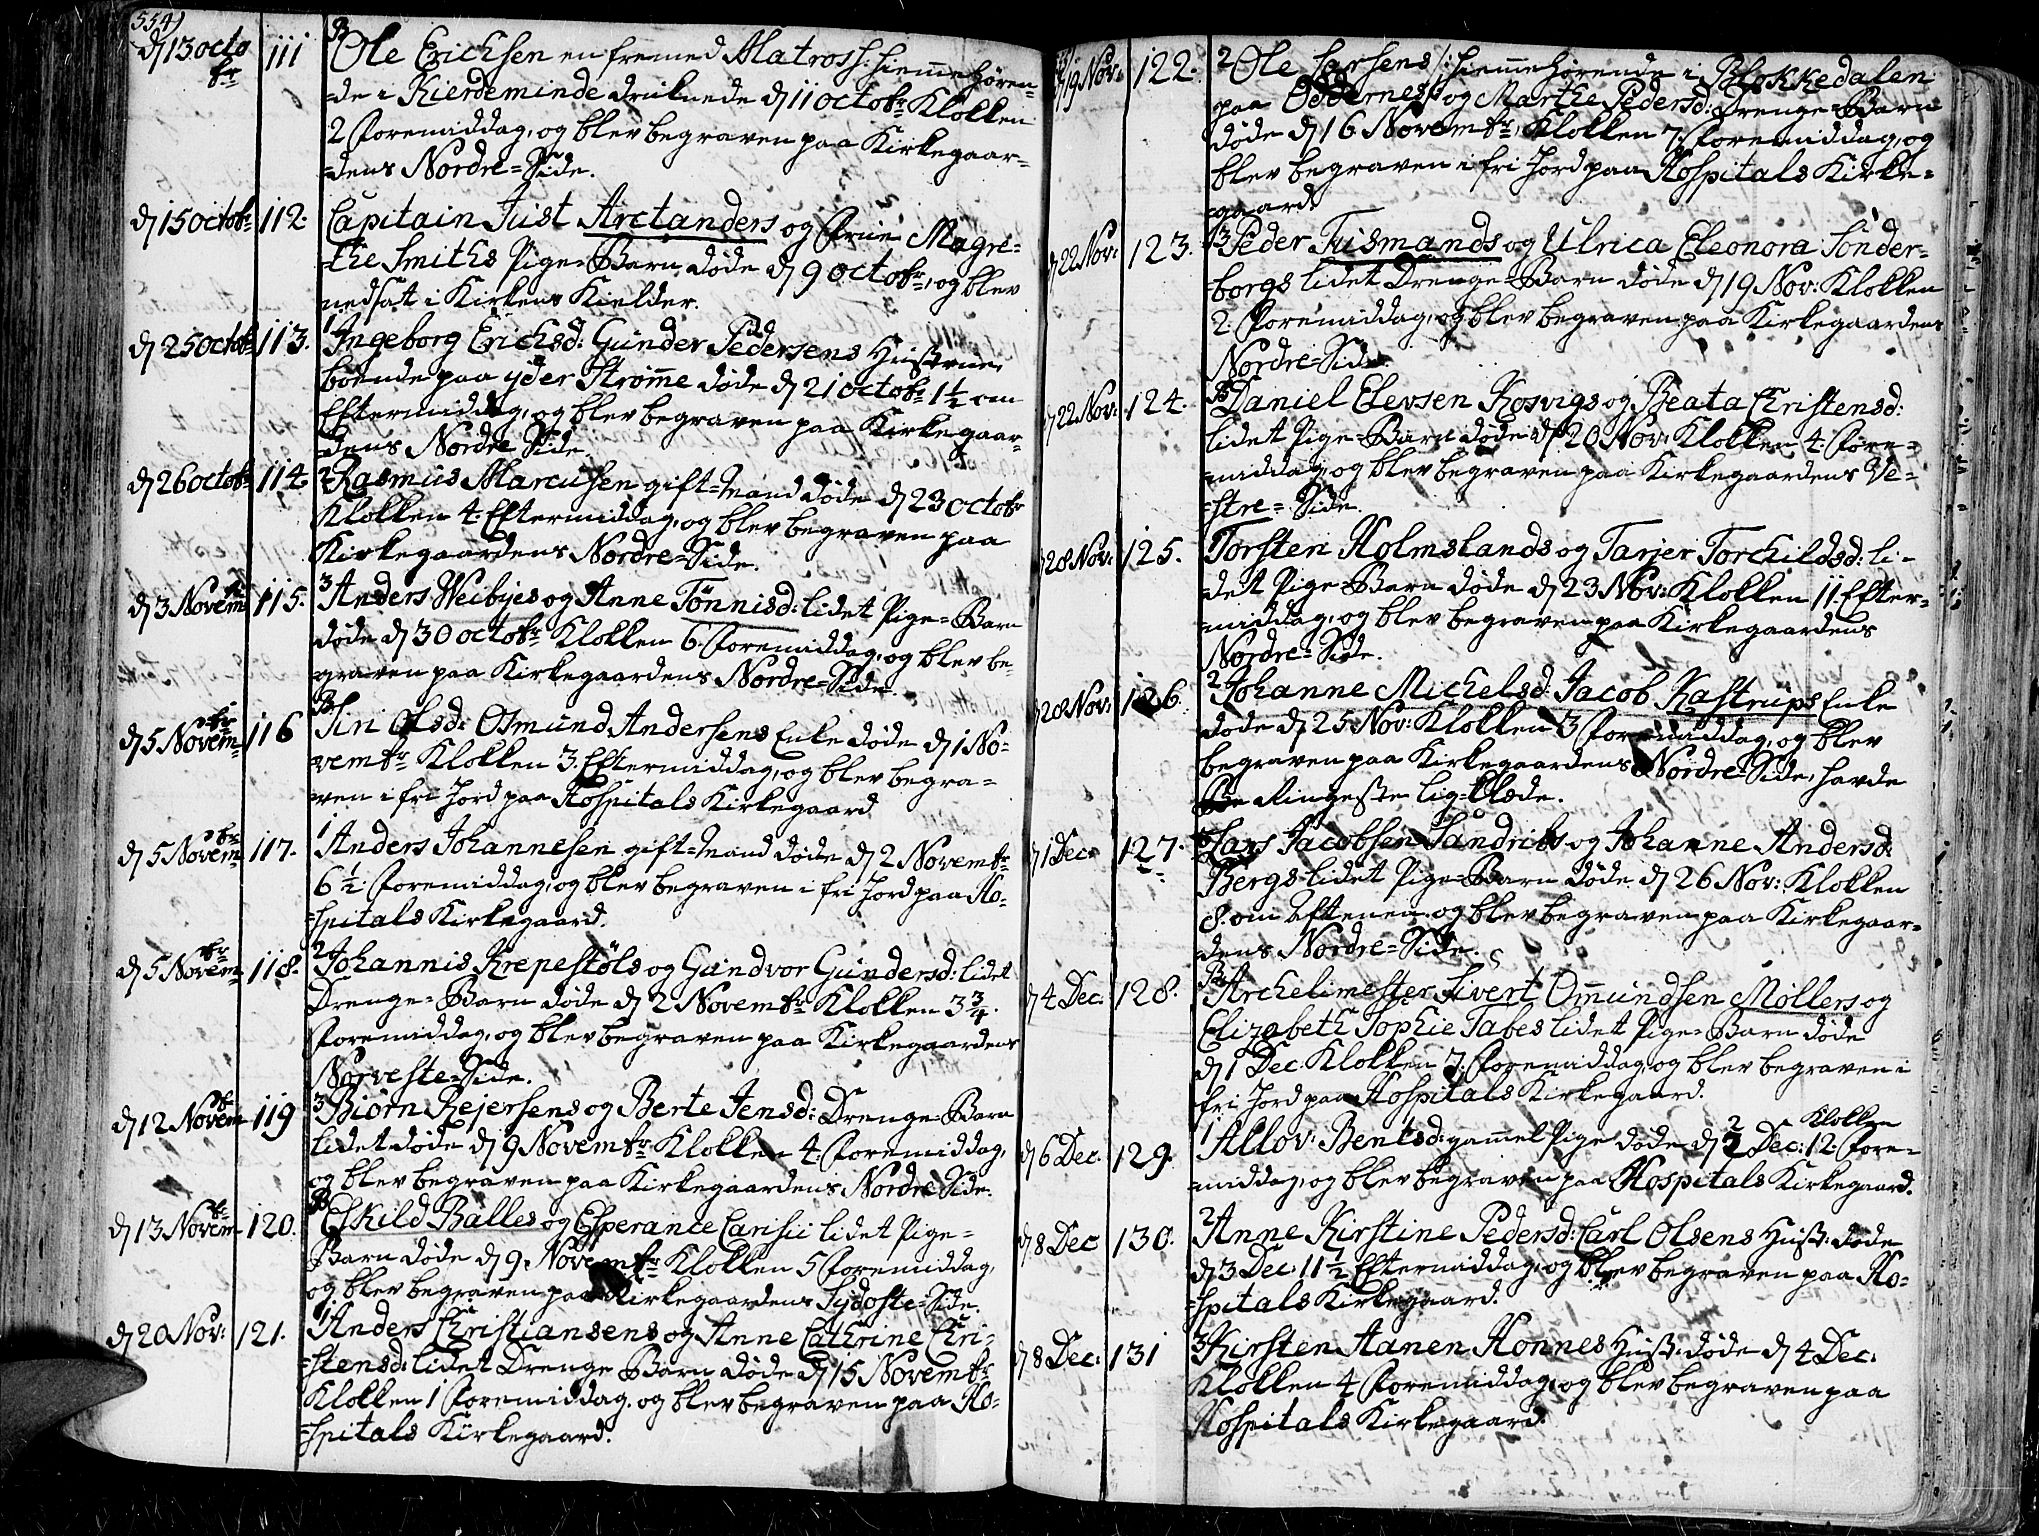 554)
d 13 octobr 111 Ole Erichsen en fremed Matros /: hiemmehøren-
-de i Kierdeminde druknede d 11 octobr Klokken
2 Formiddag, og blev begraven paa Kirkegaar-
-dens Nordre-Side.
d 15 octobr 112. Capitain Juist Arctanders og Frue Magre-
-the Smiths Pige-Barn døde d 9 octobr, og blev
nedsat i Kirkens Kielder.
d 25 octobr 113. 1 Ingeborg Erichsd: Gunder Pedersens Hustrue,
boende paa yder Strømme døde d 21 octobr 1½ om
Eftermiddag, og blev begraven paa Kirkegaar-
-dens Nordre Side.
d 26 octobr 114. 2 Rasmus Marcusen gift-Mand døde d 23 octobr
Klokken 4. Eftermiddag, og blev begraven paa
Kirkegaardens Nordre-Side.
d 3 Novembr 115. 3 Anders Weibyes og Anne Tønnisd: lidet Pige-Barn
døde d 30 octobr Klokken 6 Foremiddag, og blev be-
graven paa Kirkegaardens Nordre-Side.
d 5 Novembr 116 Siri Olsd: Osmund Andersens Enke døde d 1 No-
vembr Klokken 3. Eftermiddag, og blev begra-
ven i fri Jord paa Hospitals Kirkegaard
d 5 Novembr 117. 1 Anders Johannesen gift-Mand døde d 2 Novembr
6½ Foremiddag, og blev begraven i fri Jord paa Ho-
-spitals Kirkegaard.
d 5 Novembr 118. 2 Johannis Krepestöls og Gundvor Gundersd: lidet
Drenge-Barn døde d 2 Novembr Klokken 3¾.
Foremiddag, og blev begraven paa Kirkegaardens
Norveste-Side.
d 12 Novembr 119 3 Biørn Rejersens og Berte Jensd: Drenge-Barn
lidet døde d 9 Novembr Klokken 4. Foremiddag,
og blev begraven paa Kirkegaardens Nordre Side.
d 13 Novembr 120. Eskild Balles og Esperance Carisii lidet Pige-
Barn døde d 9. Novembr Klokken 5 Foremiddag,
og blev begraven paa Kirkegaardens Sydoste-Side.
d 20 Nov: 121. 1 Anders Christiansens og Anne Cathrine Chri-
-stensd: lidet Drenge Barn døde d 15 Novembr
Klokken 1 Foremiddag. og blev begraven paa Ho-
-spitals Kirkegaard.
d 19 Nov: 122. 2 Ole Larsens /: hiemmehørende i Blokkedalen
paa Oddernes :/ og Marthe Pedersd: Drenge-Barn
døde d 16 Novembr, Klokken 7 Foremiddag, og
blev begraven i fri Jord paa Hospitals Kirke-
gaard.
d 22 Nov: 123. 3 Peder Trismands og Ulrica Eleonora Sønder-
-borgs lidet Drenge-Barn døde d 19 Nov: Klokken
2. Foremiddag, og blev begraven paa Kirkegaardens
Nordre-Side.
d 22 Nov: 124. Daniel Elevsen Kosvigs og Beata Christensd:
lidet Pige-Barn døde d 20 Nov: Klokken 4 Fore-
-middag, og blev begraven paa Kirkegaardens Ve-
-stre-Side.
d 28 Nov: 125. Torsten Holmslands og Tarjer Torchildsd: li-
-det Pige-Barn døde d 23 Nov: Klokken 11. Efter-
-middag, og blev begraven paa Kirkegaardens
Nordre-Side.
d 28 Nov: 126. 2 Johanne Michelsd: Jacob Kastrups Enke
døde d 25 Nov: Klokken 3 Foremiddag, og blev
begraven paa Kirkegaardens Nordre-Side, havde
Ringeste Lig-Klæde.
d 1 Dec: 127. Lars Jacobsen Sandriks og Johanne Andersd:
Bergs lidet Pige-Barn døde d 26 Nov: Klokken
8. om Aftenen. og blev begraven paa Kirkegaar-
-dens Nordre-Side.
d 4 Dec: 128. Archelimester Sivert Omundsen Møllers og
Elizabeth Sophie Tabes lidet Pige-Barn døde
d 1 Dec. Klokken 7. Foremiddag, og blev begraven i
fri Jord paa Hospitals Kirkegaard.
Klokken
d 6 Dec. 129. 1 Allov: Bentsd: gammel Pige døde d 2 Dec: 12 Fore-
-middag, og blev begraven paa Hospitals Kirkegaard.
d 8 Dec 130. 2 Anne Kirstine Pedersd: Carl Olsens Hust: døde
d 3 Dec: 11½ Eftermiddag, og blev begraven paa Ho-
-spitals Kirkegaard.
d 8 Dec: 131 3 Kirsten Aanen Honnes Hust: døde d 4 Dec:
Klokken 4 Foremiddag, og blev begraven paa
Hospitals Kirkegaard.